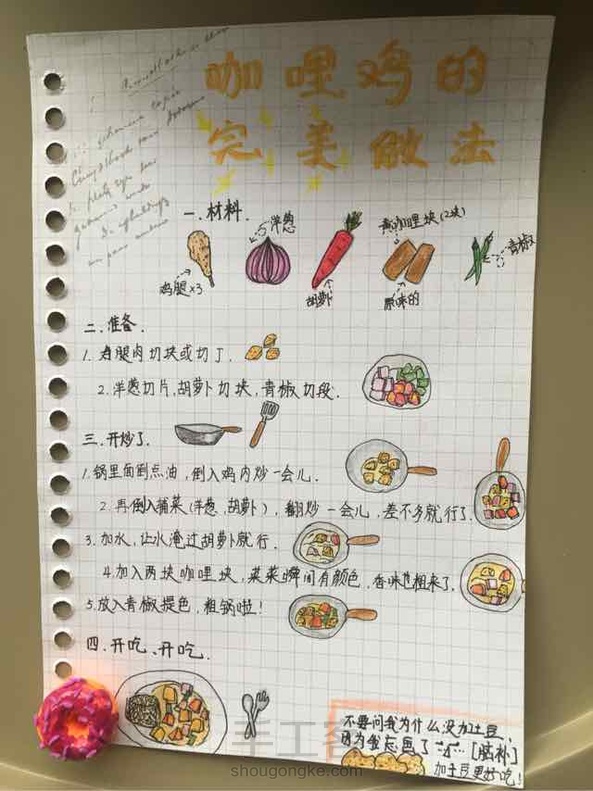 咖哩鸡的
完美做法
一.材料.
洋葱
黄咖哩块(2块)
青椒
鸡腿×3
胡萝卜
原味的
二.准备.
1.鸡腿肉切块或切丁.
2.洋葱切片,胡萝卜切块,青椒切段.
三.开炒了.
1.锅里面倒点油,倒入鸡内炒一会儿.
2.再倒入辅菜(洋葱,胡萝卜),翻炒一会儿,差不多就行了.
3.加水,让水淹过胡萝卜就行.
4.加入两块咖哩块,菜菜瞬间有颜色,香味也粗来了.
5.放入青椒提色,粗锅啦!
四.开吃.开吃.
不要问我为什么没加土豆,
因为我忘画了 [脑补]
加土豆更好吃!
手工客
shougongke.com